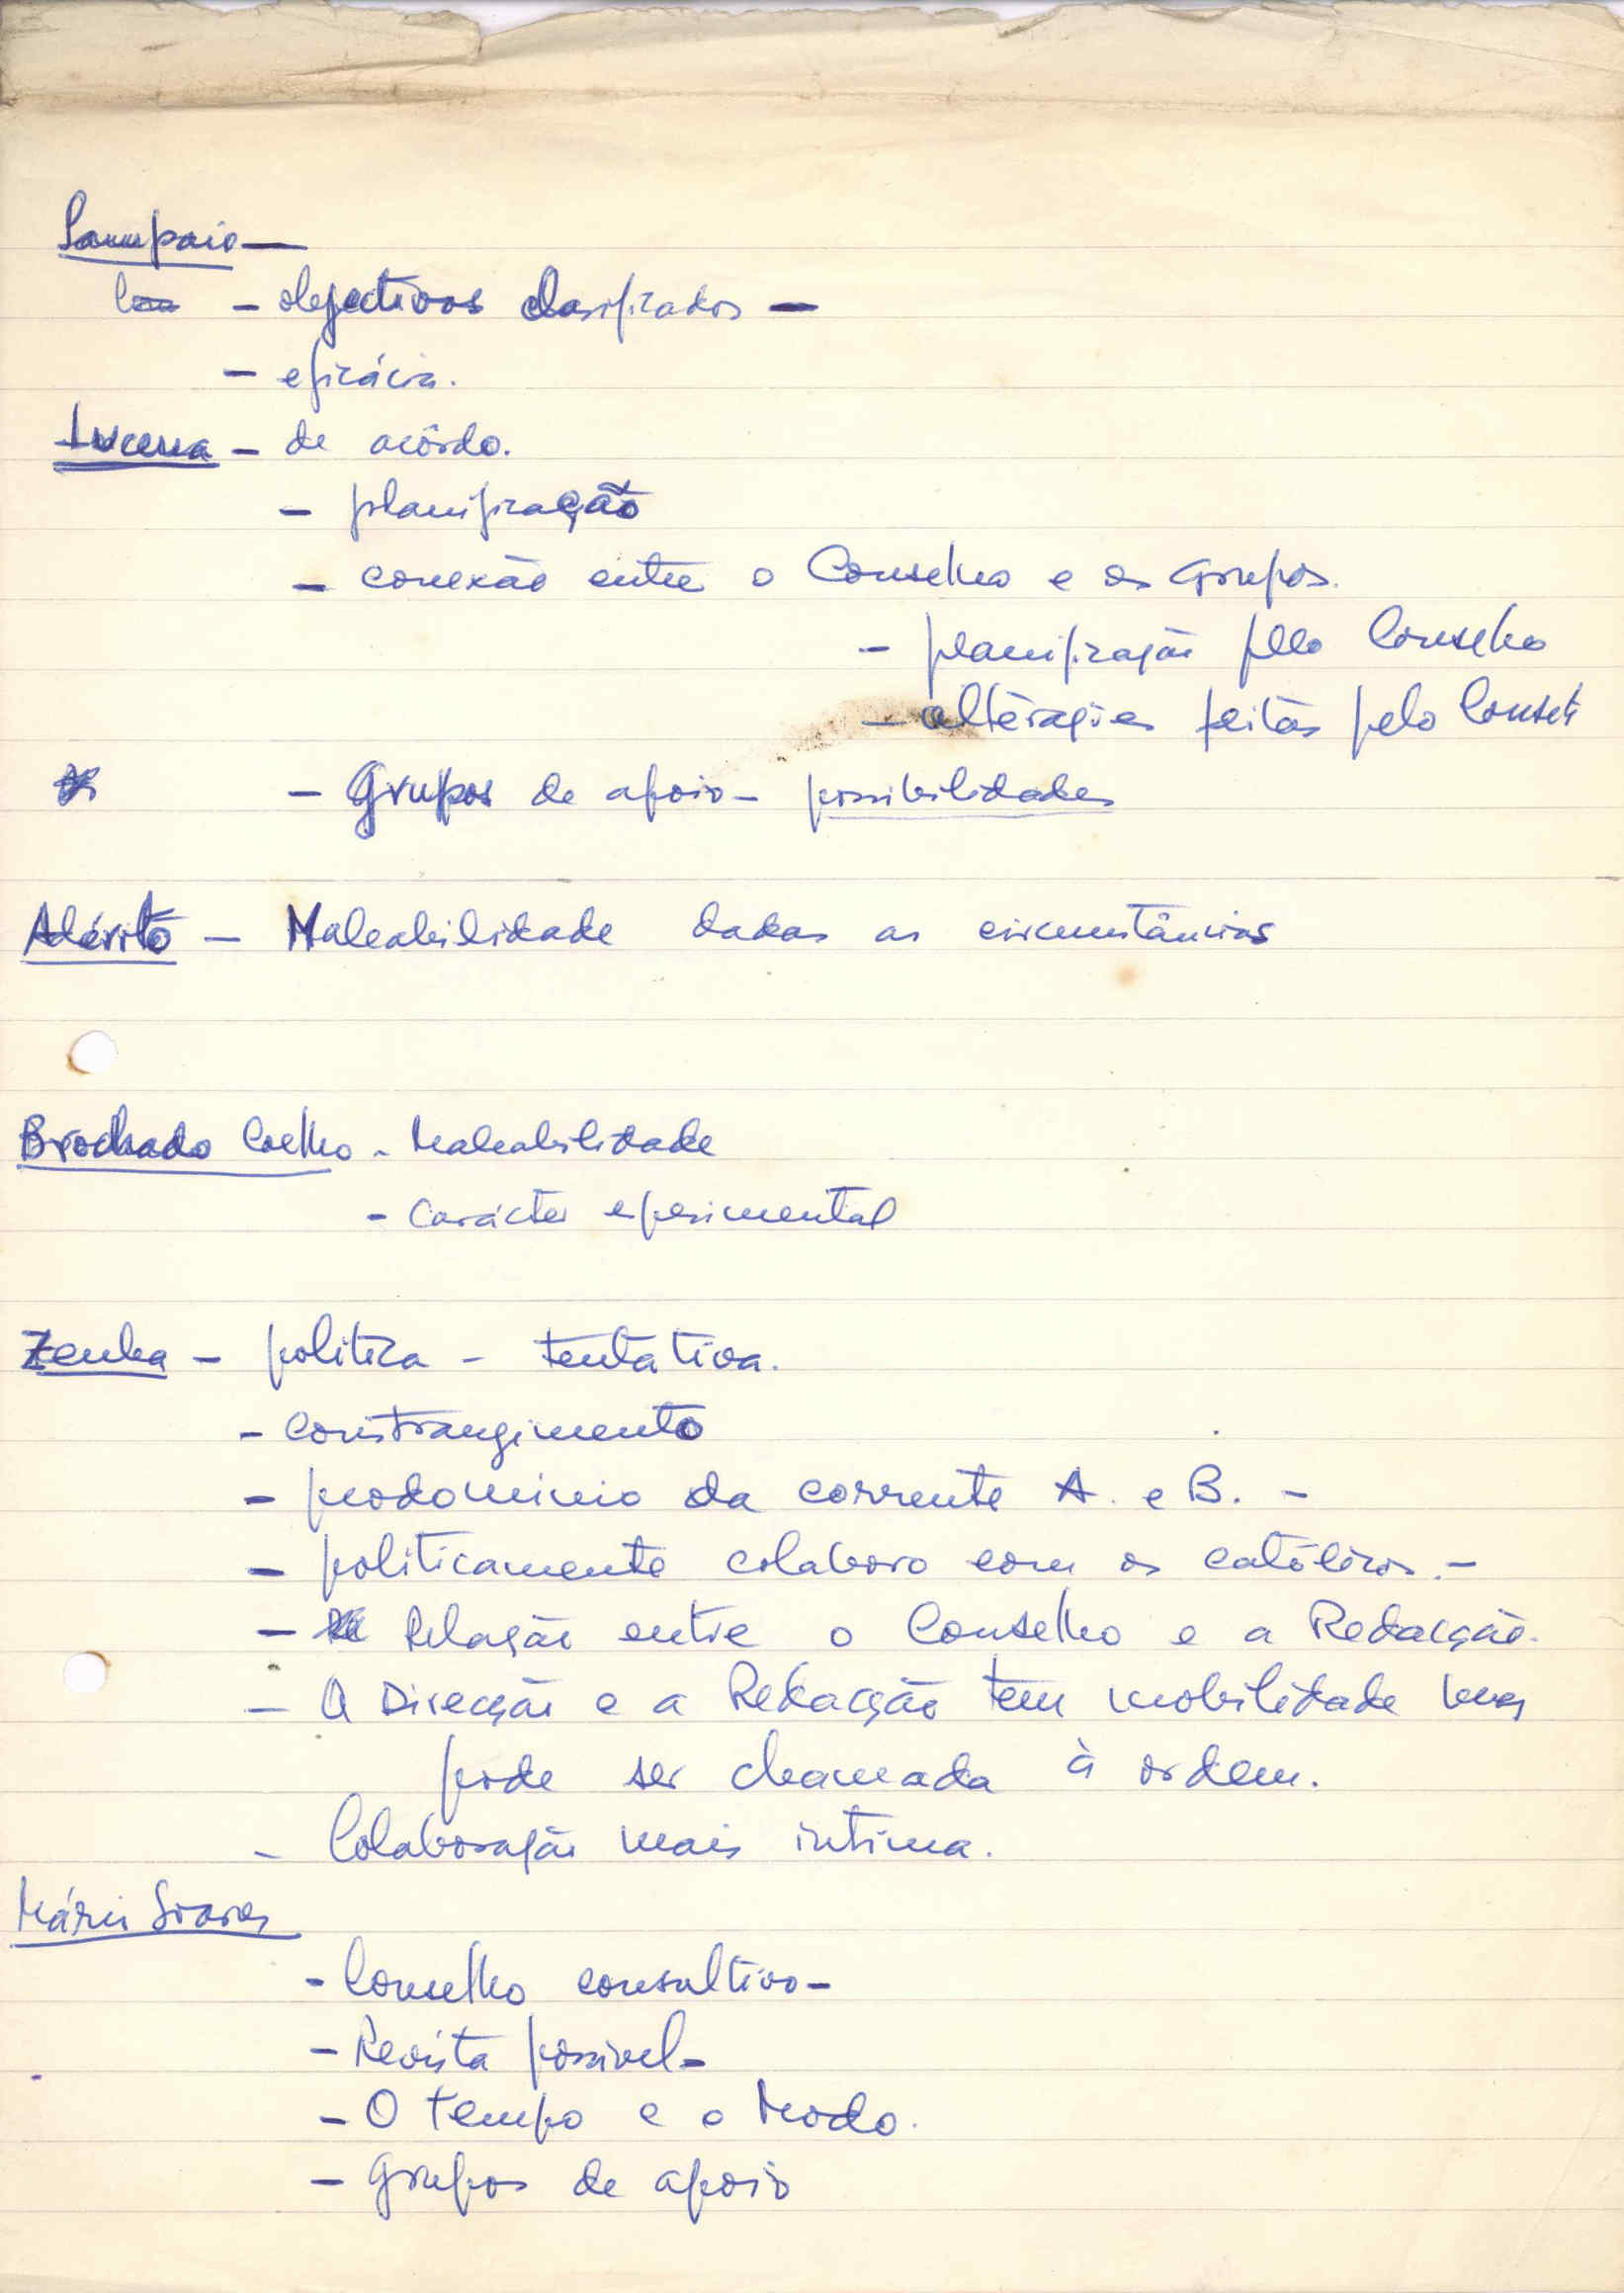 Sampaio —
— objectivos clasificados —
— eficácia.
Lucena — de acôrdo.
— planificação
— conexão entre o Conselho e os Grupos.
— planificação pelo Conselho
— alterações feitas pelo Conselh
— Grupos de apoio — possibilidades
Adérito — Maleabilidade dadas as circunstâncias
Brochado Coelho - Maleabilidade
- Carácter experimental
Zenha — politica — tentativa.
— Constrangimento
— predominio da corrente A. e B. —
— politicamente colaboro com os católicos. —
— Relação entre o Conselho e a Redacção.
— A Direcção e a Redacção tem mobilidade mas
pode ser chamada à ordem.
- Colaboração mais intima.
Mário Soares
- Conselho consultivo —
— Revista possivel —
— O Tempo e o Modo.
— Grupos de apoio